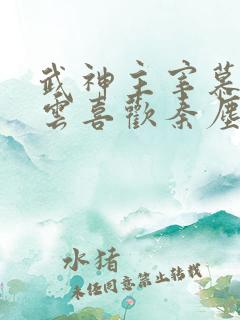 武神主宰慕
雲喜歡秦塵
水猪
未经同意禁止转载